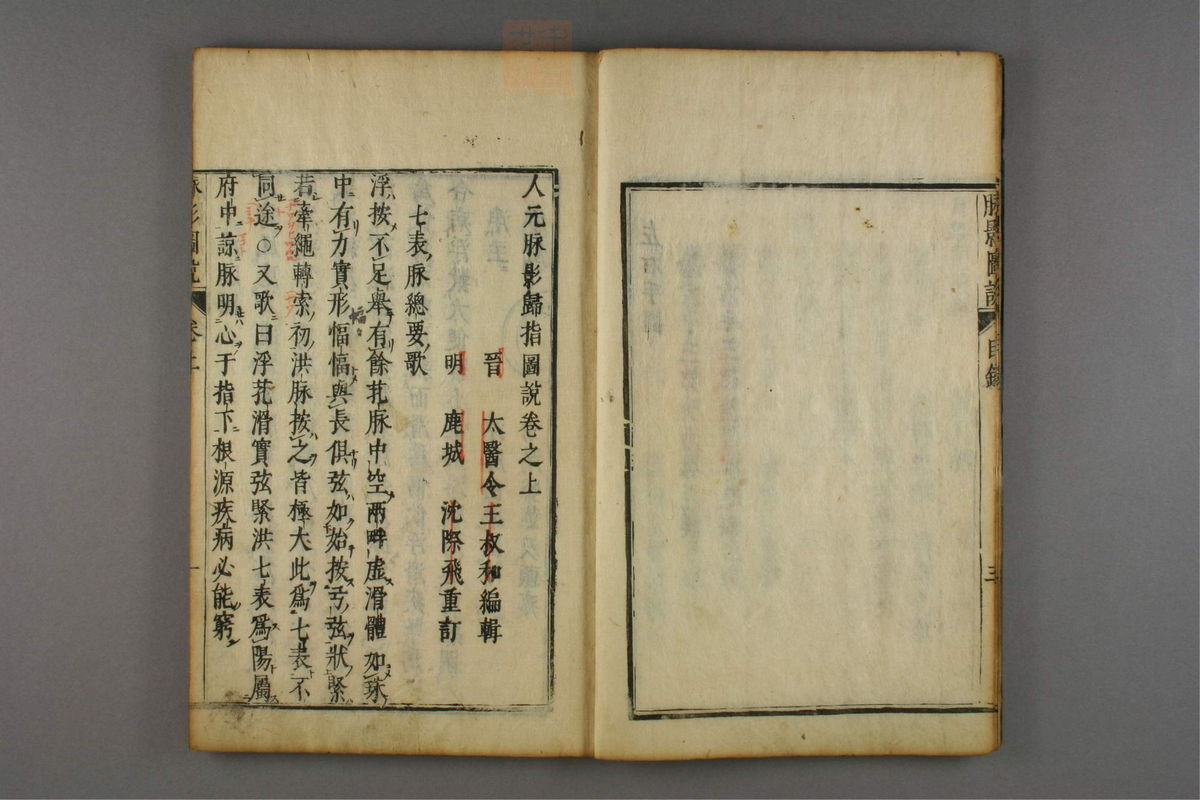 脉影圖說
目錄
三
人元脉影歸指圖說卷之上
晉　太醫令王叔和編輯
明　鹿城　沈際飛重訂
七表脉總要歌
浮按不足舉有餘芤脉中空兩畔虛滑體如珠
中有力實形愊愊與長俱弦如始按弓弦狀緊
若牽繩轉索初洪脉按之皆極大此爲七表不
同途○又歌曰浮芤滑實弦緊洪七表爲陽屬
府中諒脉明心于指下根源疾病必能窮
脉影圖說
卷上
一